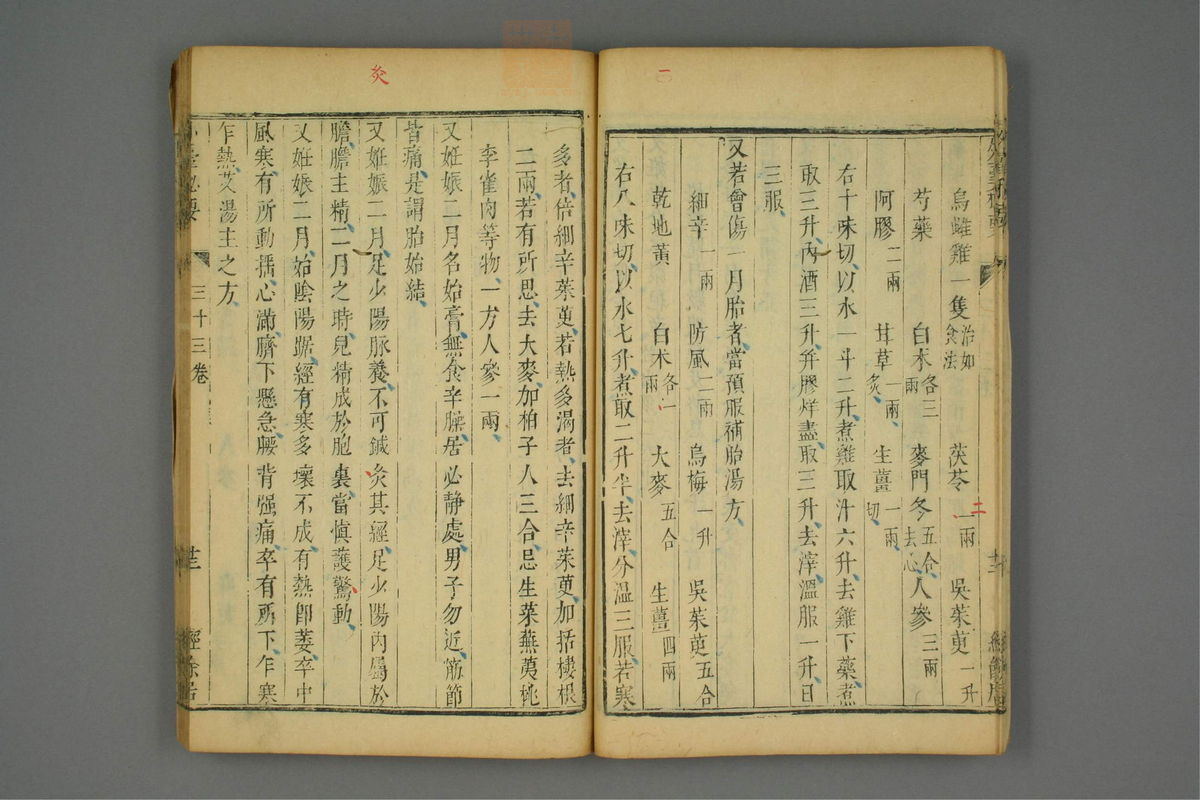 二
烏雌雞一隻治如食法 茯苓一兩 吳茱萸一升
芍藥 白朮各三兩 麥門冬五合去心 人參三兩
阿膠二兩 甘草一兩炙 生薑一兩切
右十味切以水一斗二升煮雞取汁六升去雞下藥煮
取三升內酒三升并膠烊盡取三升去滓溫服一升日
三服
又若曾傷一月胎者當預服補胎湯方
細辛一兩 防風二兩 烏梅一升 吳茱萸五合
乾地黃 白朮各一兩 大麥五合 生薑四兩
右八味切以水七升煮取二升半去滓分溫三服若寒
多者倍細辛茱萸若熱多渴者去細辛茱萸加括樓根
二兩若有所思去大麥加柏子人三合忌生菜蕪荑桃
李雀肉等物一方人參一兩
又妊娠二月名始膏無食辛臊居必靜處男子勿近筋節
皆痛是謂胎始結
又妊娠二月足少陽脈養不可鍼灸其經足少陽內屬於
膽膽主精二月之時兒精成於胞裏當慎護驚動
又妊娠二月始陰陽踞經有寒多壞不成有熱即萎卒中
風寒有所動搖心滿臍下懸急腰背强痛卒有所下乍寒
乍熱艾湯主之方
灸
三十三卷
經餘居